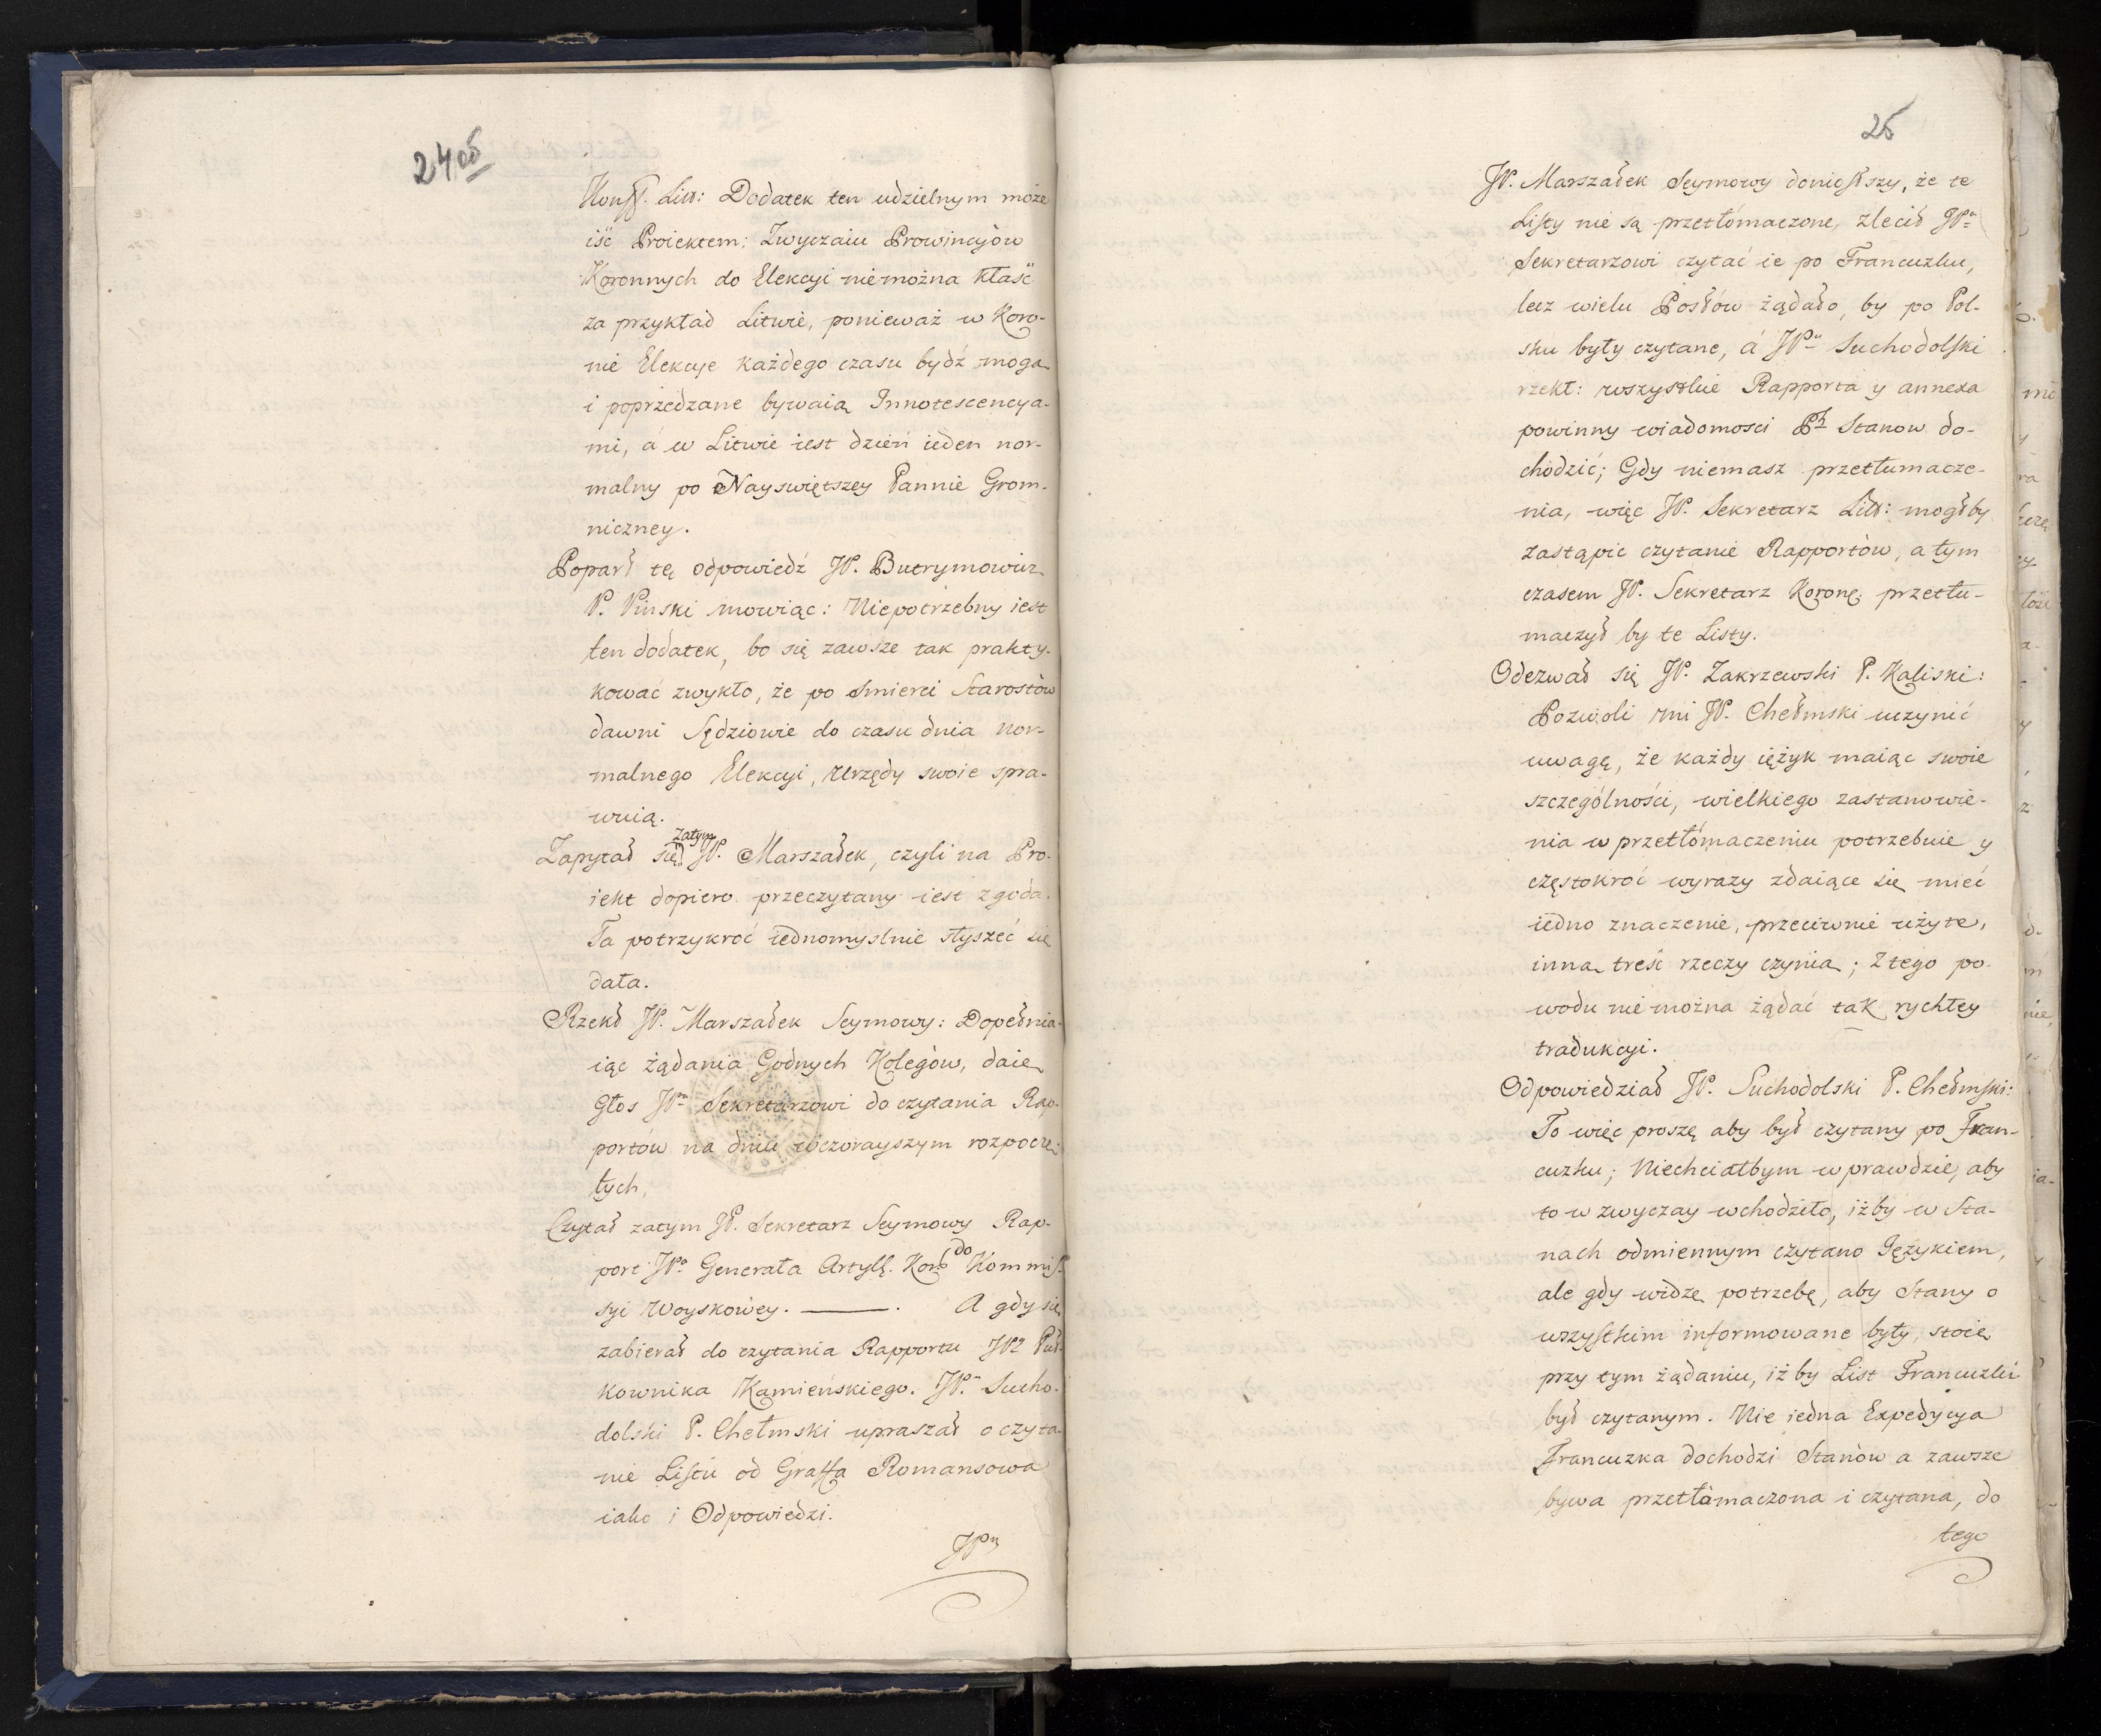 24 об
Konff. Litt: Dodatek ten udzielnym może
iść Proiektem: Zwyczaiu Prowincyòw
Koronnych do Elekcyi niemożna kłaść
za przykład Litwie, ponieważ w Koro-
nie Elekcye każdego czasu bydź mogą
i poprzedzane bywaią Innotescencya-
mi, á w Litwie iest dzień ieden nor-
malny po Nayswiętszey Pannie Grom-
niczney.
Poparł tę odpowiedź JP. Butrymowicz
P. Pinski mowiąc: Niepotrzebny iest
ten dodatek, bo się zawsze tak prakty-
kować zwykło, że po smierci Starostòw
dawni Sędziowie do czasu dnia nor-
malnego Elekcyi, Urzędy swoie spra-
wuią.
Zapytał się zatym JP. Marszałek, czyli na Pro-
iekt dopiero przeczytany iest zgoda.
Ta potrzykroć iednomyslnie słyszeć się
dała.
Rzekł JP. Marszałek Seymowy: Dopełnia-
iąc żądania Godnych Kolegòw, daię
Głos JPu Sekretarzowi do czytania Rap-
portòw na dniu wczorayszym rozpoczę-
tych,
Czytał zatym JP. Sekretarz Seymowy Rap-
port JPa Generała Artyll. Kor: do Kommis-
syi Woyskowey. ——. A gdy się
zabierał do czytania Rapportu JPa Puł-
kownika Kamieńskiego. JPn Sucho-
dolski P. Chełmski upraszał o czyta-
nie Listu od Graffa Romansowa
iako i Odpowiedzi.
JPn
25
JP. Marszałek Seymowy doniosłszy, że te
Listy nie są przetłómaczone, zlecił JPu
Sekretarzowi czytać ie po Francuzku,
lecz wielu Posłów żądało, by po Pol-
sku były czytane, á JPn Suchodolski
rzekł: wszystkie Rapporta y annexa
powinny wiadomosci Pch Stanow do-
chodzić; Gdy niemasz przetłumacze-
nia, więc JP. Sekretarz Litt: mogłby
zastąpic czytanie Rapportòw, a tym
czasem JP. Sekretarz Koronę. przetłu-
maczył by te Listy.
Odezwał się JP. Zakrzewski P. Kaliski:
Pozwoli mi JP. Chełmski uczynić
uwagę, że każdy ięzyk maiąc swoie
szczególności, wielkiego zastanowie-
nia w przetłómaczeniu potrzebuie y
częstokroć wyrazy zdaiące się mieć
iedno znaczenie, przeciwnie użyte,
inną treść rzeczy czynią; Z tego po-
wodu nie można żądać tak rychłey
tradukcyi.
Odpowiedział JP. Suchodolski P. Chełmski:
To więc proszę aby był czytany po Fran-
cuzku; Niechciałbym wprawdzie, aby
to w zwyczay wchodziło, iżby w Sta-
nach odmiennym czytano Językiem,
ale gdy widzę potrzebę, aby Stany o
wszystkim informowane były, stoię
przy tym żądaniu, iż by List Francuzki
był czytanym. Nie iedna Expedycya
Francuzka dochodzi Stanòw a zawsze
bywa przetłómaczona i czytana, do
tego